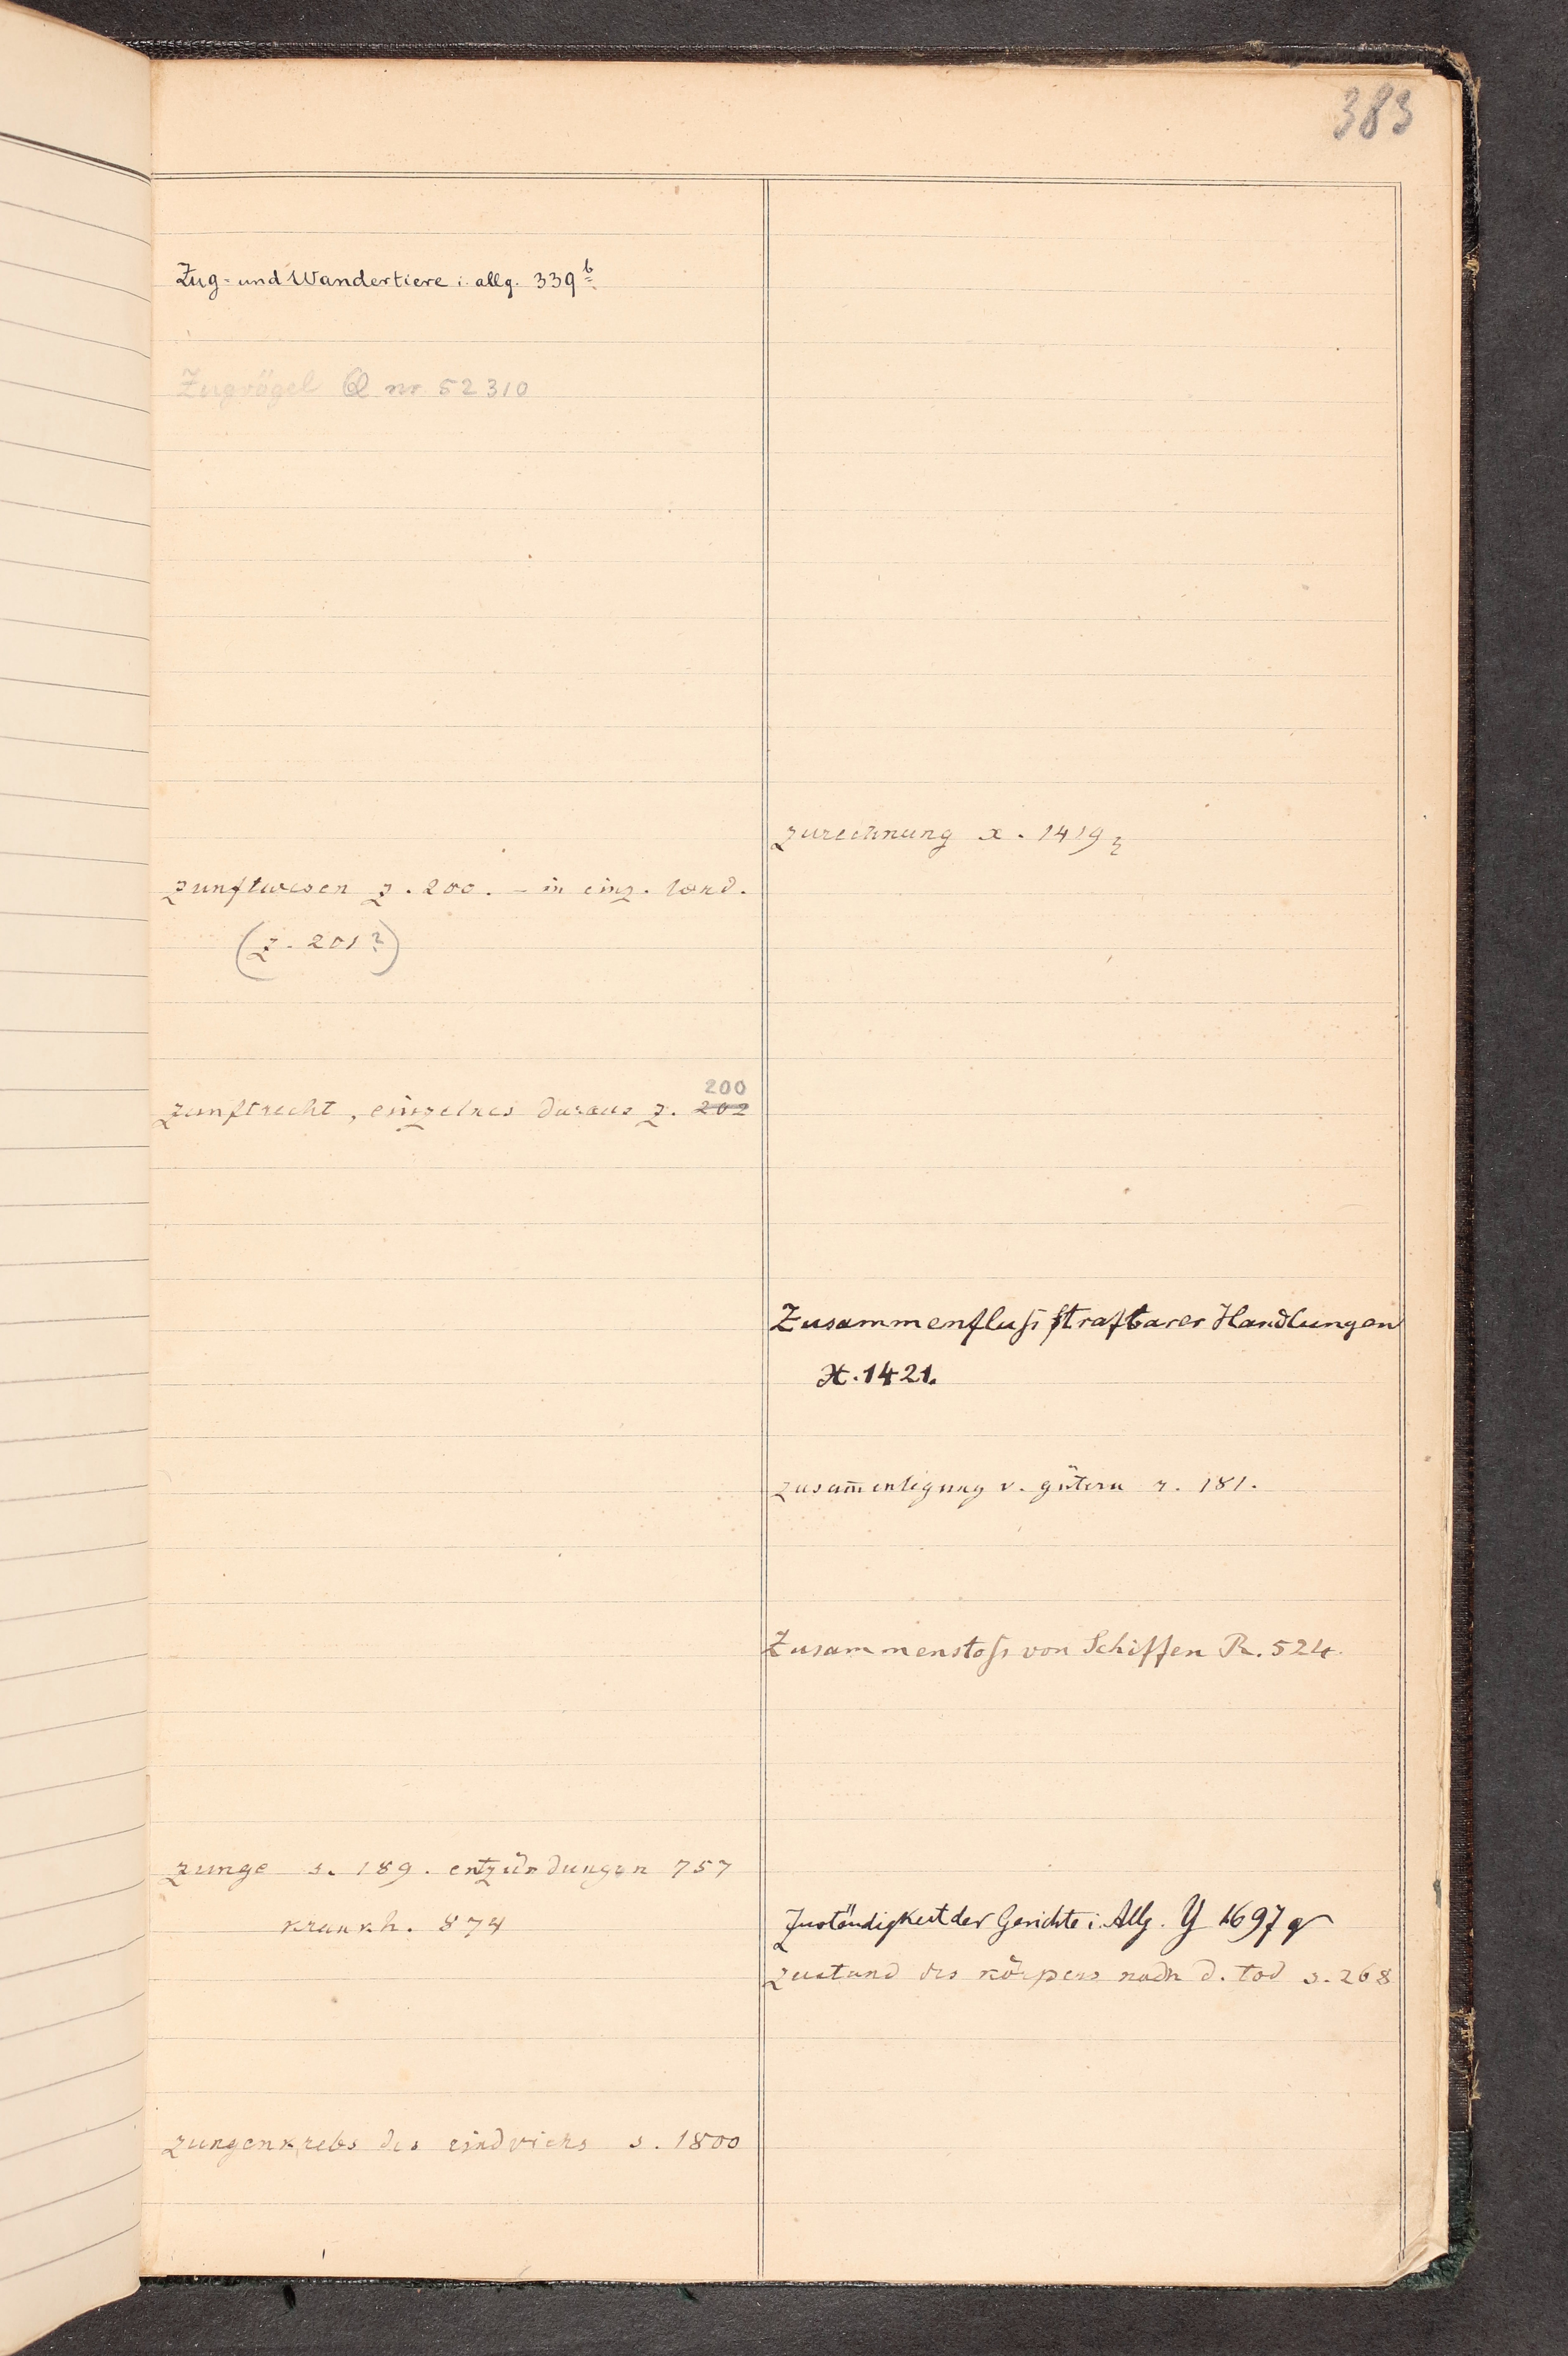 383
Zug- und Wandertiere i. allg. 339b
Zugvögel Q nr 52310
zunftwesen z. 200. – in einz. länd.
(z. 201?)
200
zunftrecht, einzelnes daraus z. 202
zunge s. 189. entzündungen 757
krankh. 874
zungenkrebs des rindviehs s. 1800
zurechnung x. 1419
Zusammenfluß strafbarer Handlungen
X. 1421.
zusam̄enlegung v. gütern r. 181.
Zusammenstoß von Schiffen R. 524.
Zuständigkeit der Gerichte i. Allg. Y 1697
zustand des körpers nach d. tod s. 268